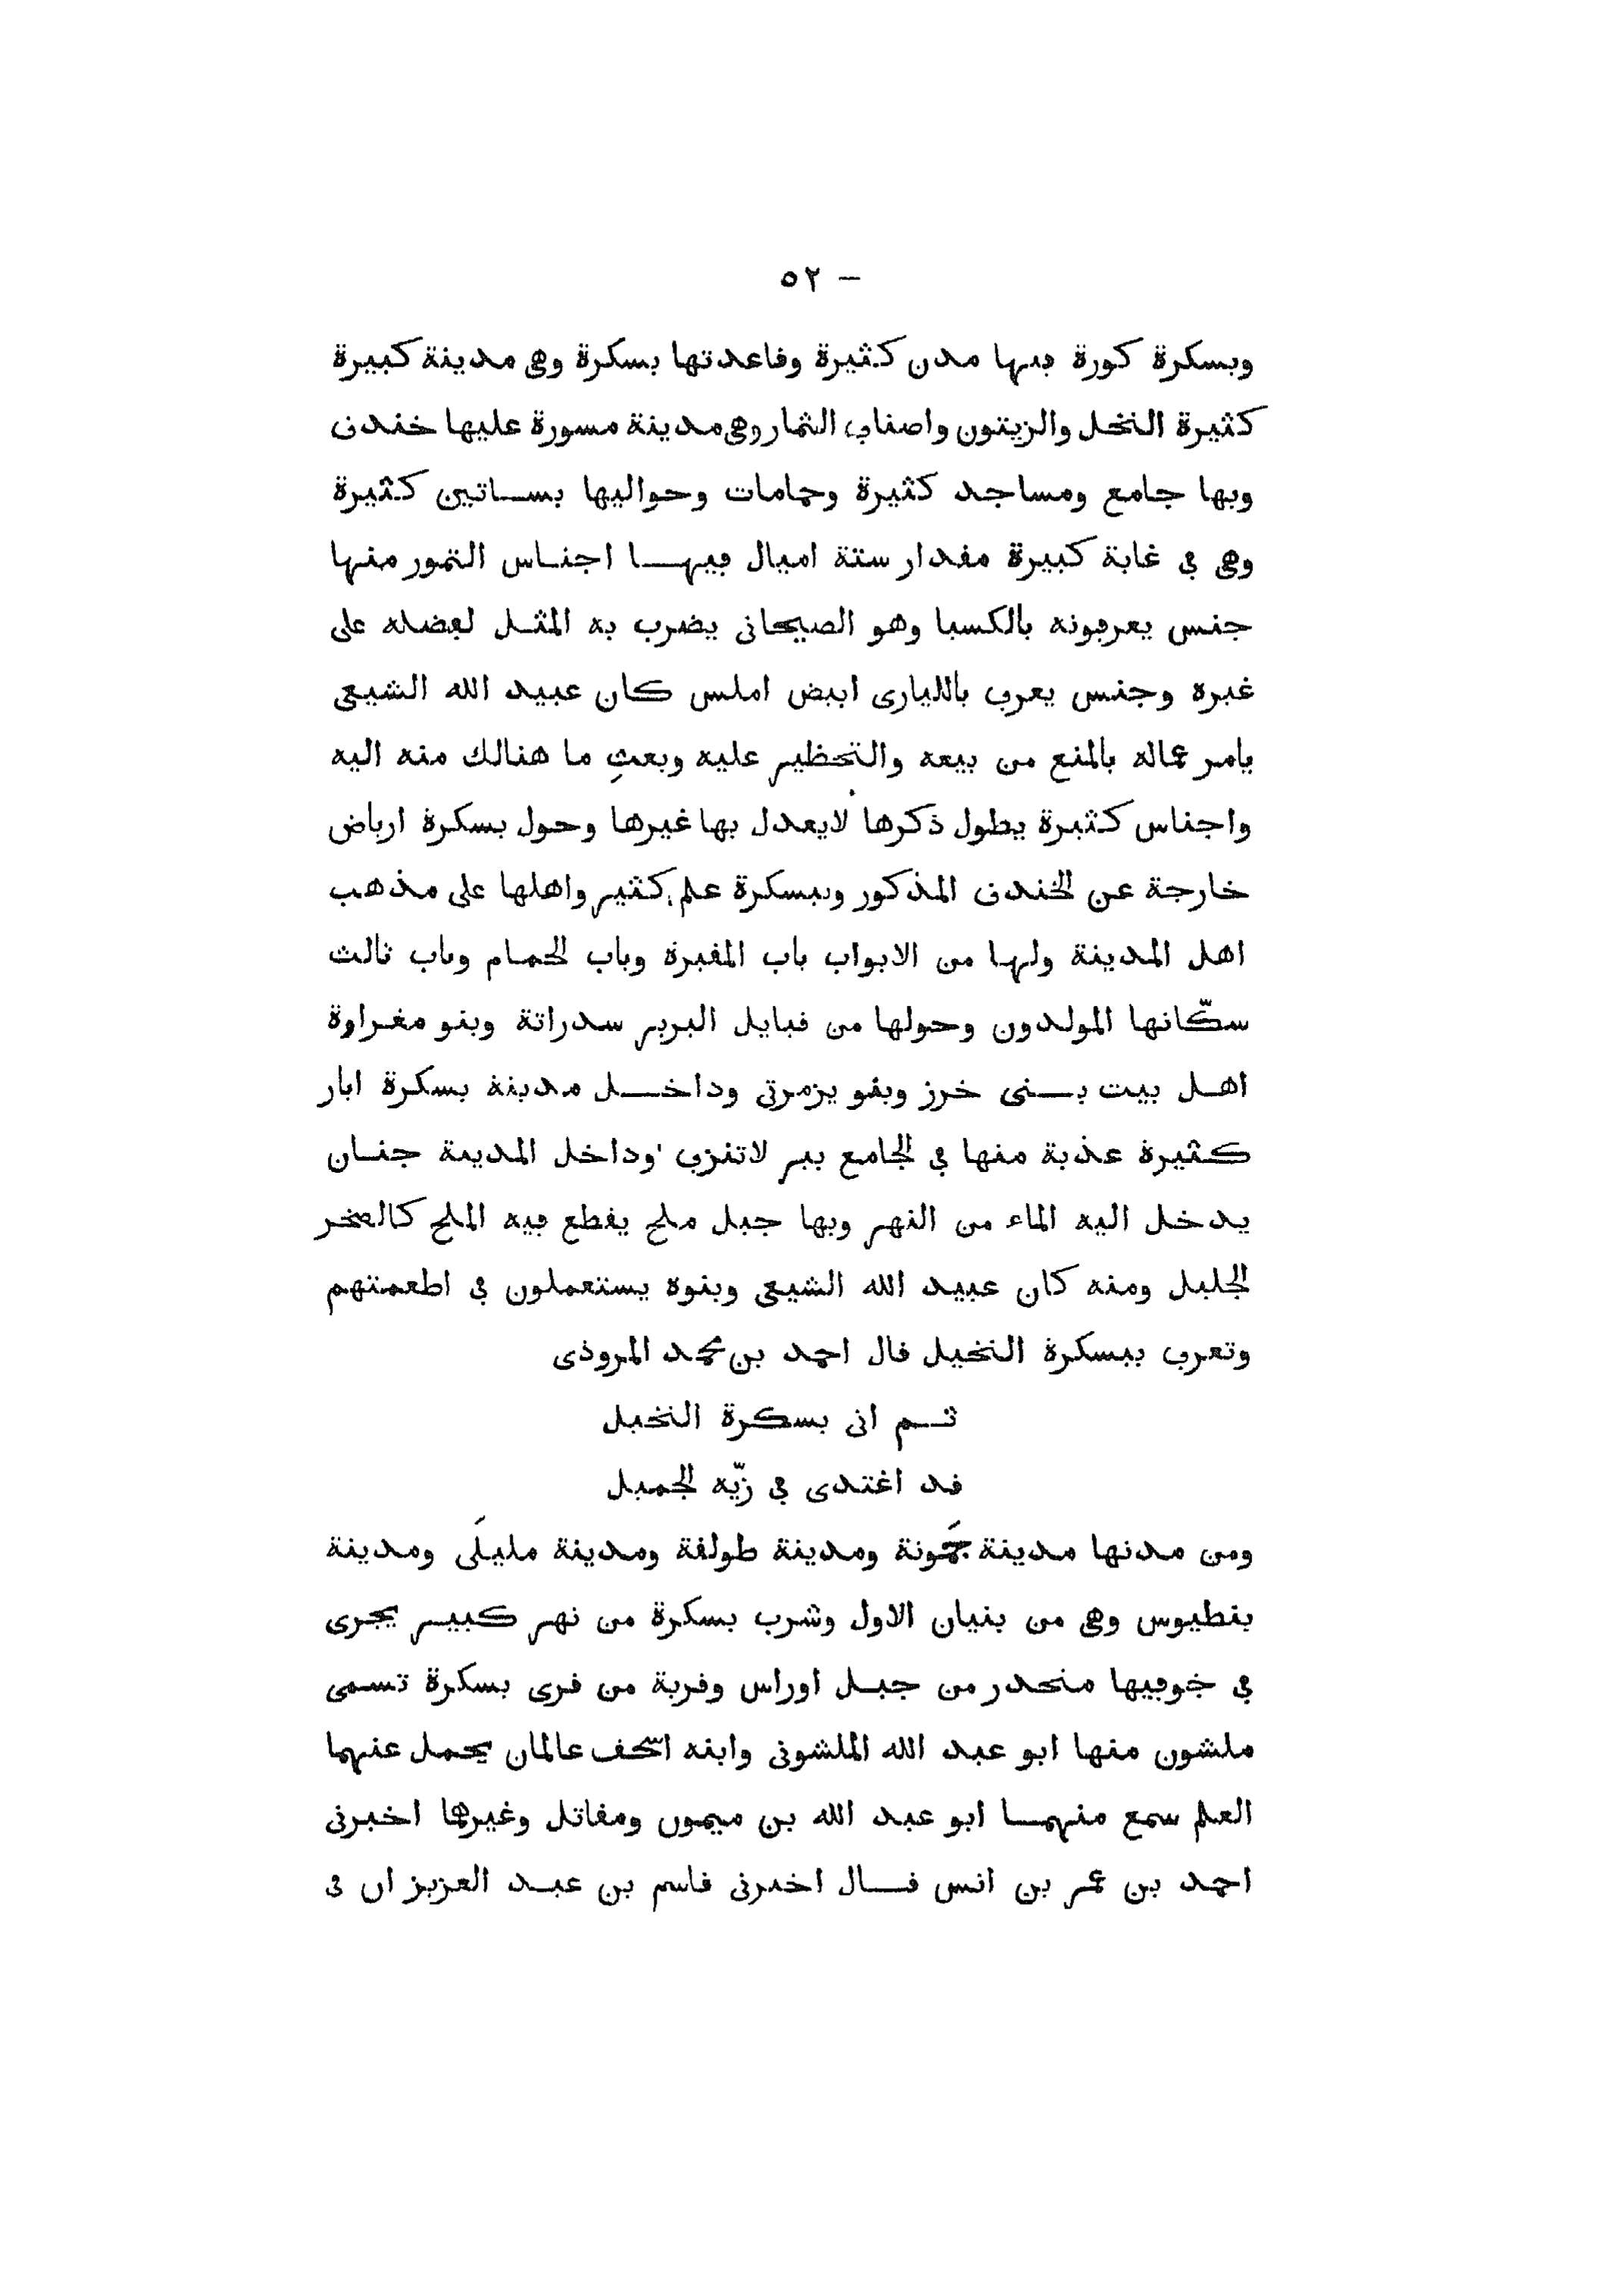 — ٥٢
وبسكرة كورة فيها مدن كثيرة وقاعدتها بسكرة وهى مدينة كبيرة
كثيرة النخل والزيتون واصناف الثمار وهى مدينة مسورة عليها خندق
وبها جامع ومساجد كثيرة وحمامات وحواليها بساتين كثيرة
وهى فى غابة كبيرة مقدار ستة اميال فيها اجناس التمور منها
جنس يعرفونه بالكسبا وهو الصيحانى يضرب به المثل لفضله على
غيره وجنس يعرف باللبارى ابيض املس كان عبيد الله الشيعى
يامر عماله بالمنع من بيعه والتحظير عليه وبعث ما هنالك منه اليه
واجناس كثيرة يطول ذكرها لا يعدل بها غيرها وحول بسكرة ارباض
خارجة عن الخندق المذكور وببسكرة علم كثير واهلها على مذهب
اهل المدينة ولها من الابواب باب المقبرة وباب الحمام وباب ثالث
سكّانها المولدون وحولها من قبايل البربر سدراتة وبنو مغراوة
اهل بيت بنى خرز وبنو يزمرتى وداخل مدينة بسكرة ابار
كثيرة عذبة منها فى الجامع بير لا تنزف وداخل المدينة جنان
يدخل اليه الماء من النهر وبها جبل ملح يقطع فيه الملح كالصخر
الجليل ومنه كان عبيد الله الشيعى وبنوه يستعملون فى اطعمتهم
وتعرف ببسكرة النخيل قال احمد بن محمد المروذى
ثم اتى بسكرة النخيل
قد اغتدى فى زيّه الجميل
ومن مدنها مدينة جمَونة ومدينة طولقة ومدينة مليلَى ومدينة
بنطيوس وهى من بنيان الاول وشرب بسكرة من نهر كبير يجرى
فى جوفيها منحدر من جبل اوراس وقرية من قرى بسكرة تسمى
ملشون منها ابو عبد الله الملشونى وابنه اسحق عالمان يحمل عنهما
العلم سمع منهما ابو عبد الله بن ميمون ومقاتل وغيرهما اخبرنى
احمد بن عمر بن انس قال اخبرنى قاسم بن عبد العزيز ان فى